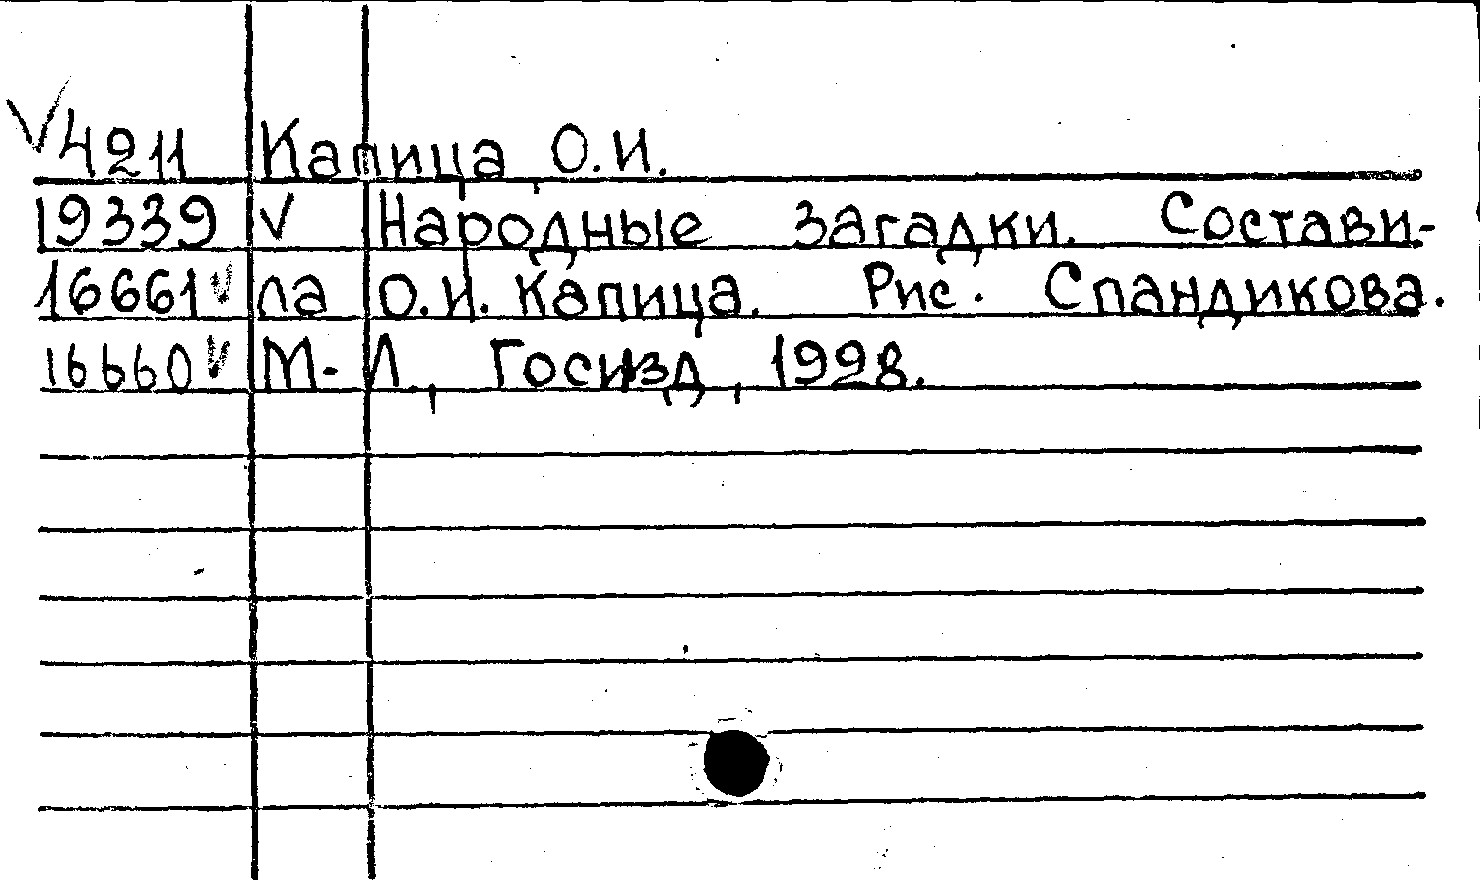 √4211 Капица, О.И.
19339 √ Народные загадки. Состави-
16661√ ла О.И. Капица. Рис. Спандикова.
16660√ М-Л., Госизд, 1928.